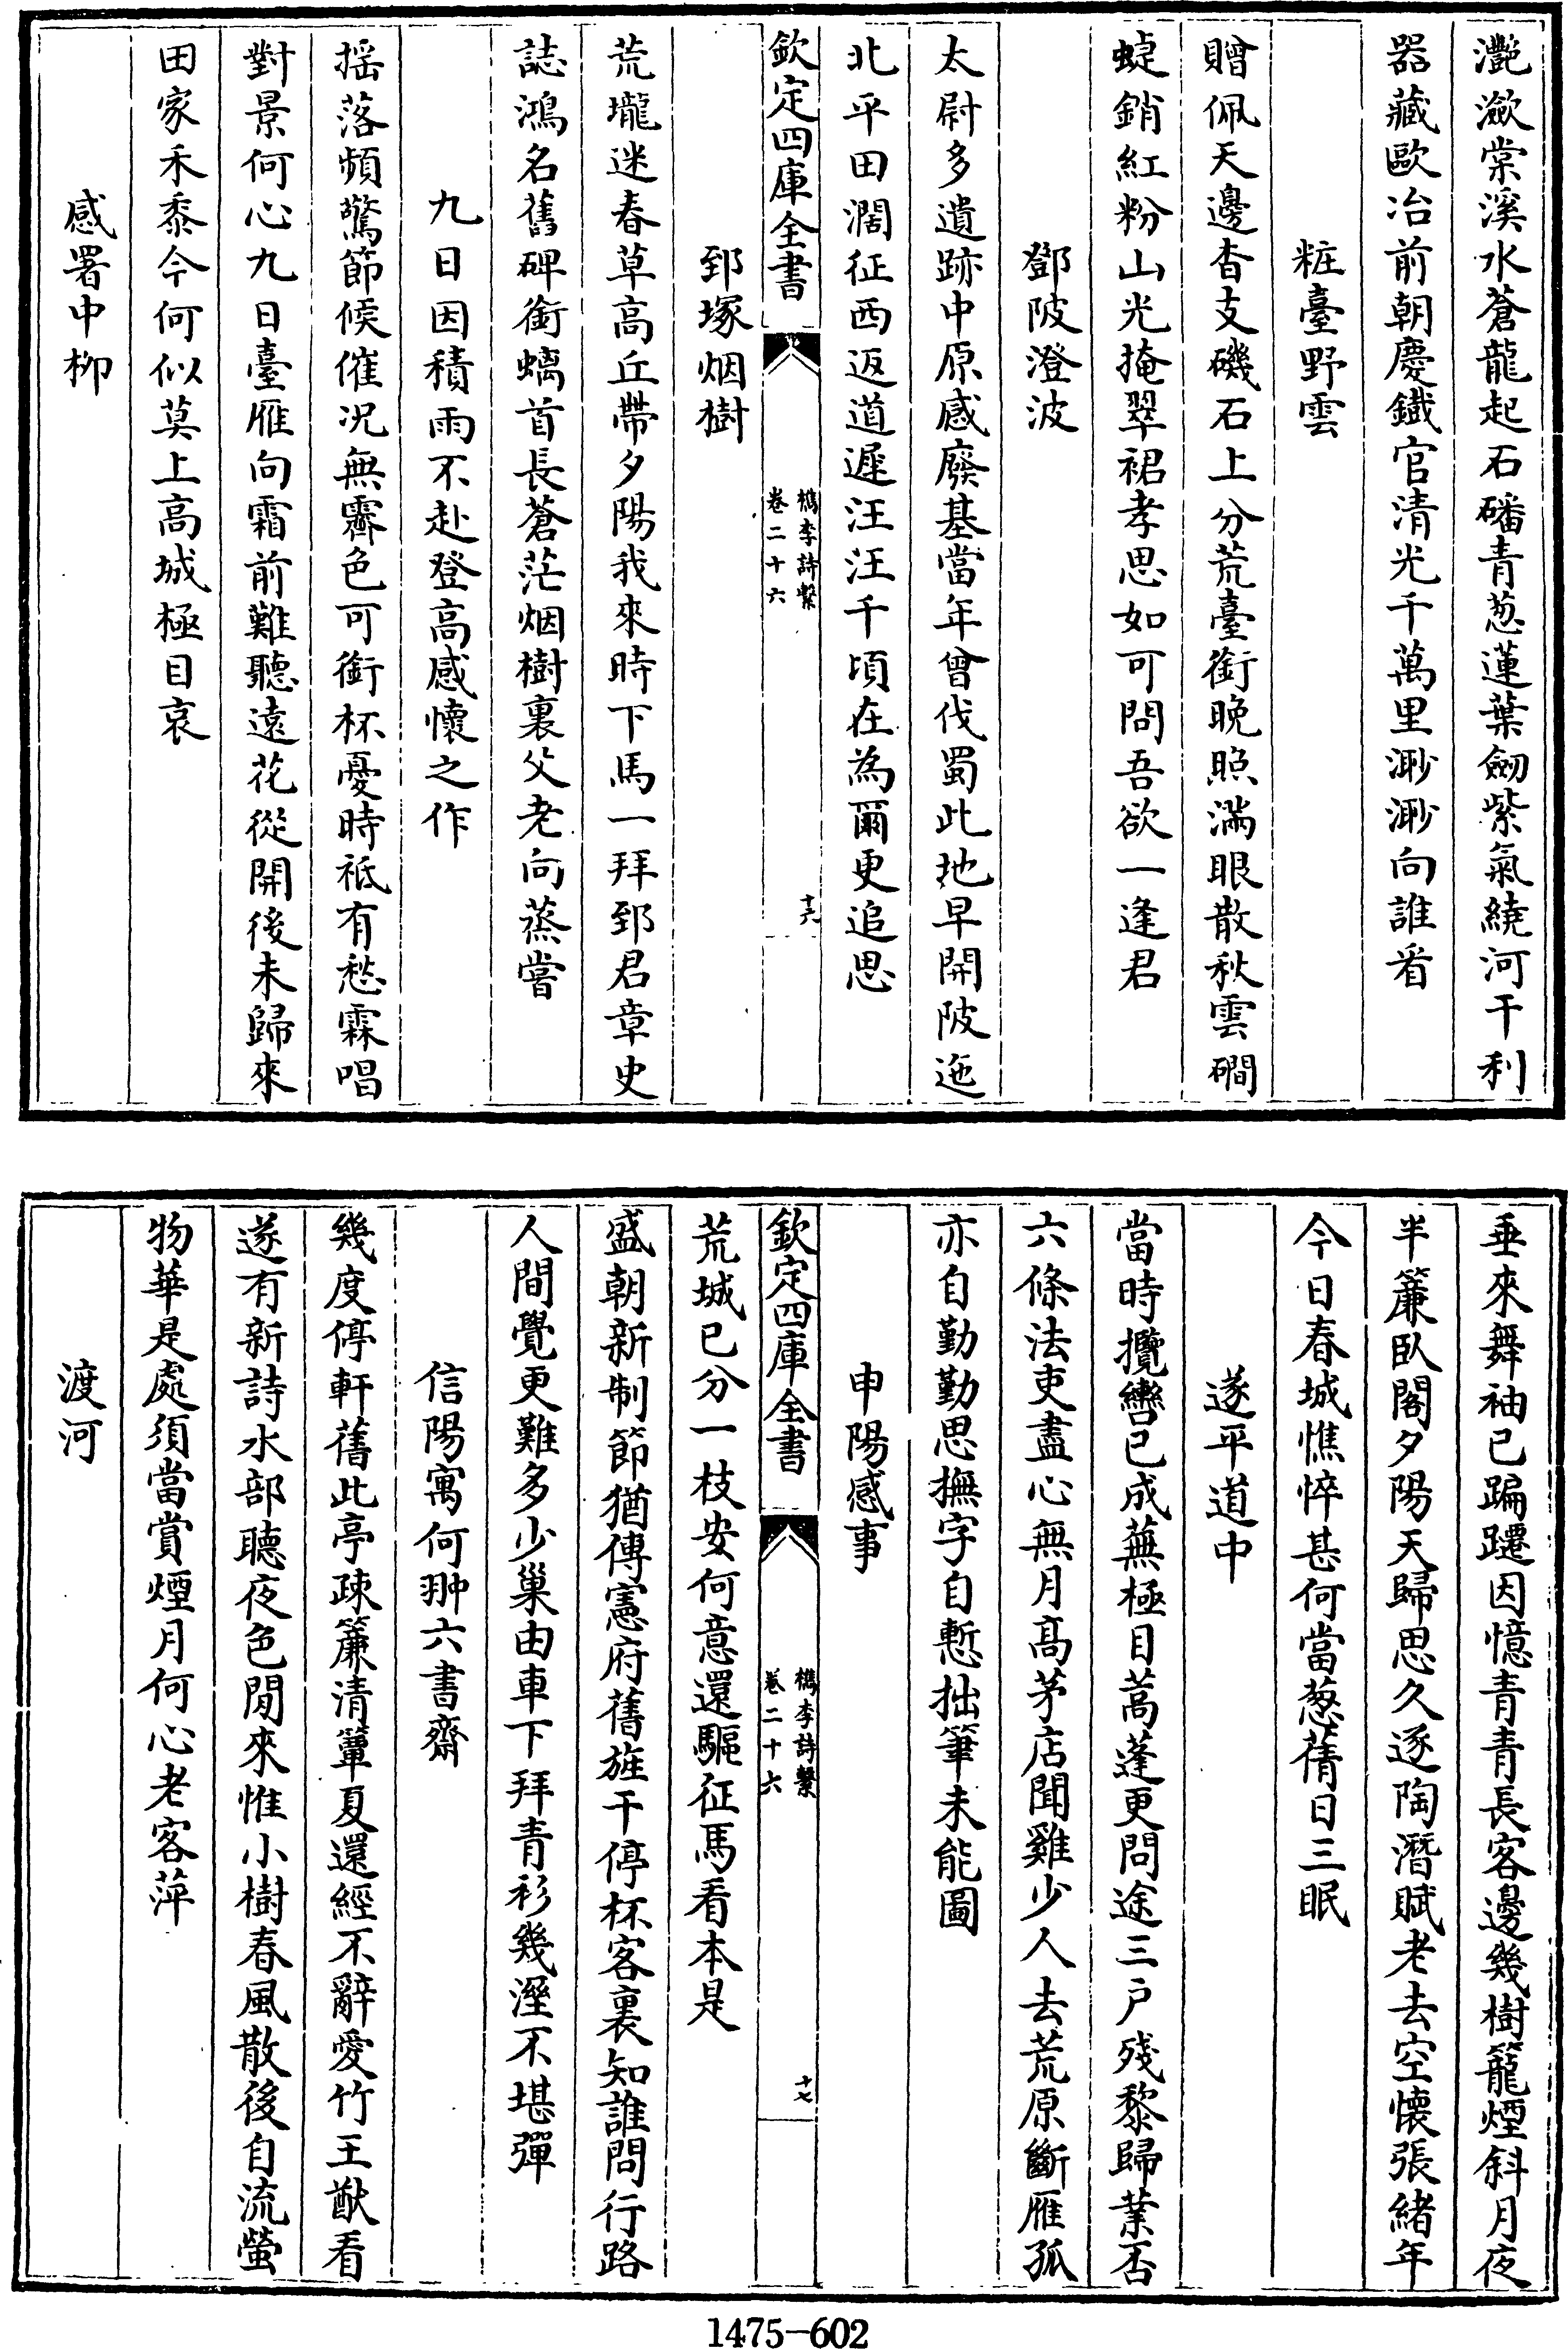 灧瀲棠溪水蒼龍起石磻青葱蓮葉劒紫氣繞河干利
器藏歐冶前朝慶鐵官清光千萬里渺渺向誰看
粧臺野雲
贈佩天邊杳支磯石上分荒臺銜晩照滿眼散秋雲磵
蝬銷紅粉山光掩翠裙孝思如可問吾欲一逢君
鄧陂澄波
太尉多遺跡中原感廢基當年曾伐蜀此地早開陂迤
北平田濶征西返道遲汪汪千頃在為爾更追思
欽定四庫全書
檇李詩繫
卷二十六
十六
郅塚烟樹
荒壠迷春草高丘帶夕陽我來時下馬一拜郅君章史
誌鴻名舊碑銜螭首長蒼茫烟樹裏父老向蒸嘗
九日因積雨不赴登高感懷之作
揺落頻驚節候催况無霽色可銜杯憂時祗有愁霖唱
對景何心九日臺雁向霜前難聽逺花從開後未歸來
田家禾黍今何似莫上高城極目哀
感署中柳
垂來舞袖已蹁躚因憶青青長客邊幾樹籠煙斜月夜
半簾臥閣夕陽天歸思久逐陶潛賦老去空懷張緒年
今日春城憔悴甚何當葱蒨日三眠
遂平道中
當時攬轡已成蕪極目蒿蓬更問途三户殘黎歸業否
六條法吏盡心無月髙茅店聞雞少人去荒原斷雁孤
亦自勤勤思撫字自慙拙筆未能圖
申陽感事
荒城已分一枝安何意還驅征馬看本是
欽定四庫全書
檇李詩繫
卷二十六
十七
盛朝新制節猶傳憲府舊旌干停杯客裏知誰問行路
人間覺更難多少巢由車下拜青衫幾溼不堪彈
信陽寓何翀六書齋
幾度停軒舊此亭疎簾清簟夏還經不辭愛竹王猷看
遂有新詩水部聽夜色閒來惟小樹春風散後自流螢
物華是處須當賞煙月何心老客萍
渡河
1475-602